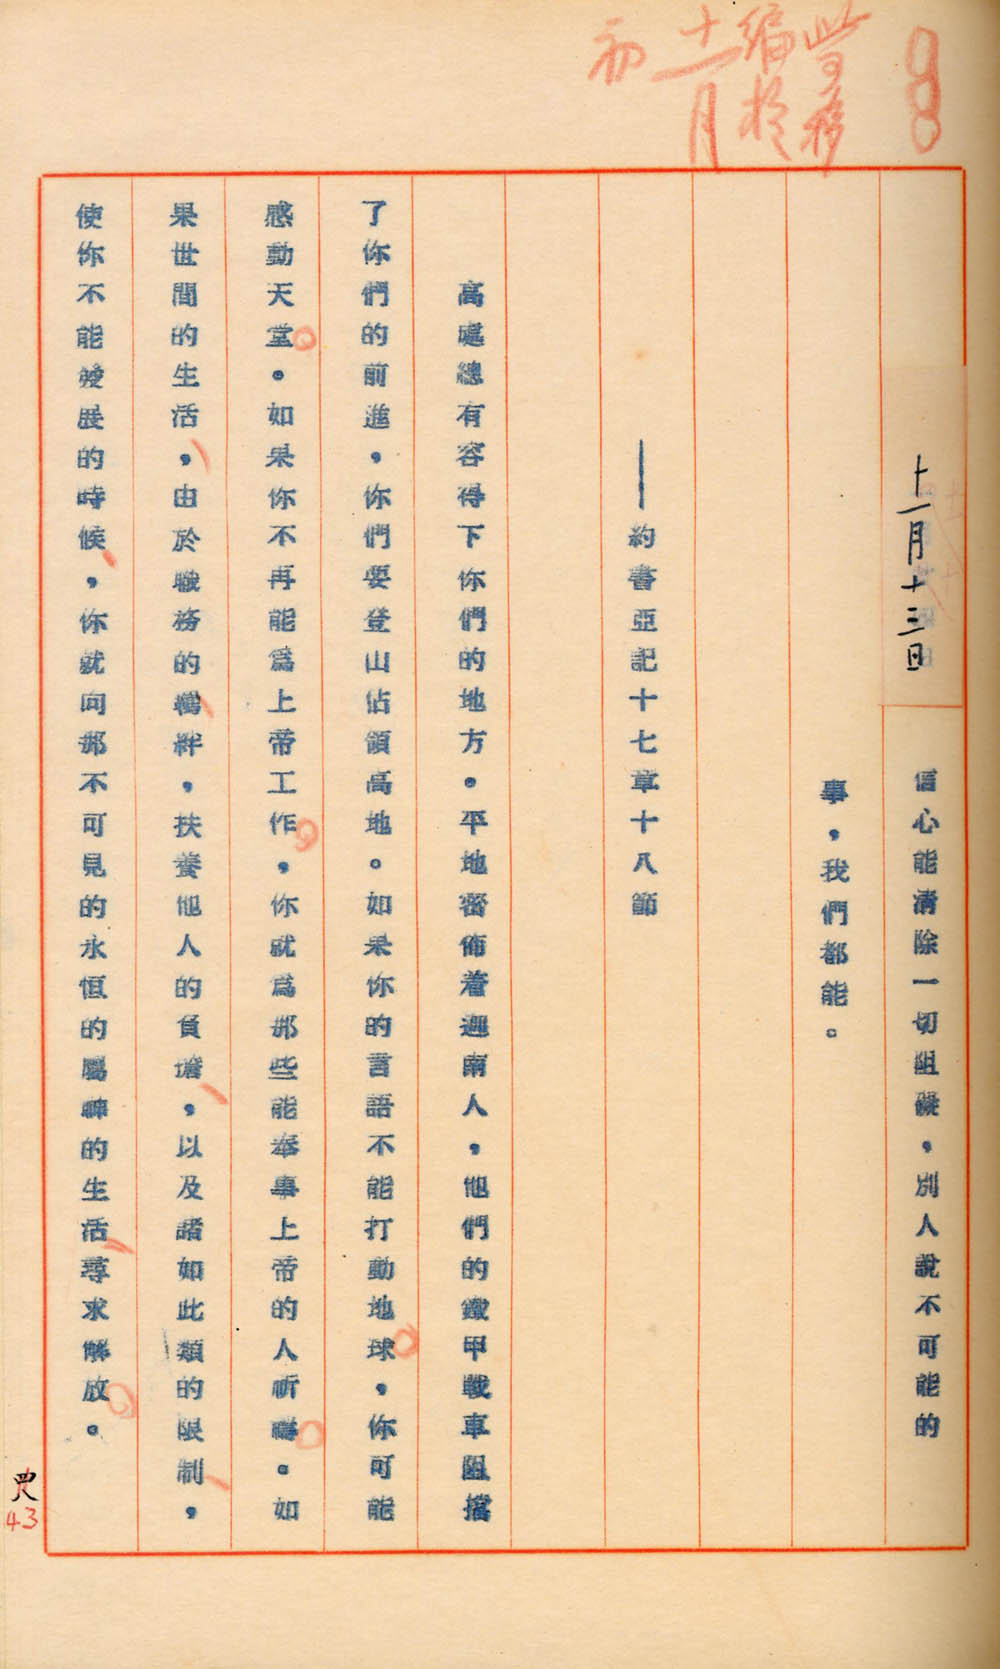 編於
十一月
初
88
十一月十三日
信心能清除一切阻礙，別人說不可能的
事，我們都能。
——約書亞記十七章十八節
高處總有容得下你們的地方。平地密佈着迦南人，他們的鐵甲戰車阻擋
了你們的前進，你們要登山佔領高地。如果你的言語不能打動地球，你可能
感動天堂。如果你不再能爲上帝工作，你就爲那些能奉事上帝的人祈禱。如
果世間的生活，由於職務的羈絆，扶養他人的負擔，以及諸如此類的限制，
使你不能發展的時候，你就向那不可見的永恒的屬神的生活尋求解放。
43